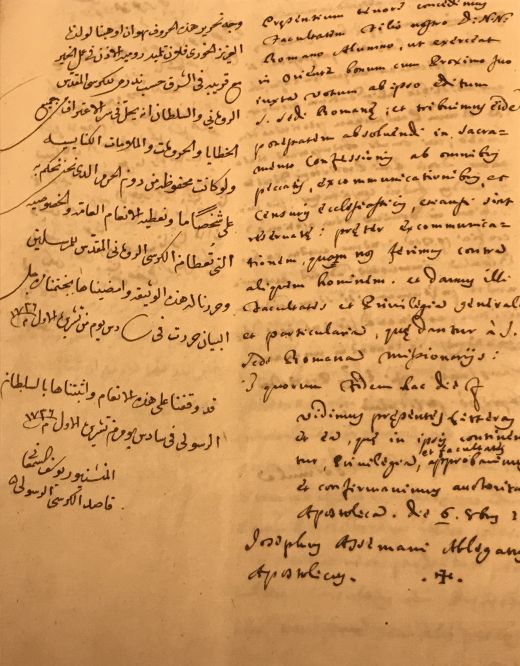 وجه تحرير هذه الحروف هو اننا وهبنا لولدنا
العزيز الخوري فلان تلميد رومية الاذن في عمل الخير
مع قريبه في الشرق حسب ندره للكرسي المقدس
الروماني والسلطان انه يحل في سر الاعتراف من جميع
الخطايا والحرومات والملومات الكنايسيه
ولو كانت محفوظه من دون الحرم الدي نحن نحكم به
على شخص ما ونعطيه الانعام العامه والخصوصيه
التي تُعطا من الكرسي الروماني المقدس للمرسلين
وحررنا له هذه الوثيقه وامضيناها بختمنا
البيان حررت في يوم من تشرين الاول ١٧٣٦
قد وقفنا على هذه الانعام واثبتناها بالسلطان
الرسولي في سادس يوم من تشرين الاول ١٧٣٦
يوسف السمعاني
قاصد الكرسي الرسولي
Presentium tenore concedimus
Facultatem Filio nostro D: NN:
Romano Alumno, ut exerceat
in Oriente bonum cum Proximo suo
iuxta votum ab ipso editum
S. Sedi Romanæ; et tribuimus Eidem
potestatem absoluendi in sacra-
mento Confessionis ab omnibus
peccatis, excommunicationibus, et
Censuris ecclesiasticis, etiamsi sint
reseruatæ: præter excommunica-
tionem, quam nos ferimus contra
aliquem hominem. et damus illi
Facultates et Priuilegia generalia
et particularia, quæ dantur à S.
Sede Romana Missionarijs:
In quorum Fidem hac die
Vidimus præsentes Litteras
et ea, quæ in ipsis continen
tur, Priuilegia, et facultates approbauimus
et confirmauimus auctoritate
Apostolica. die 6. 8bris
Josephus Assemani Ablegatus
Apostolicus. ✠.